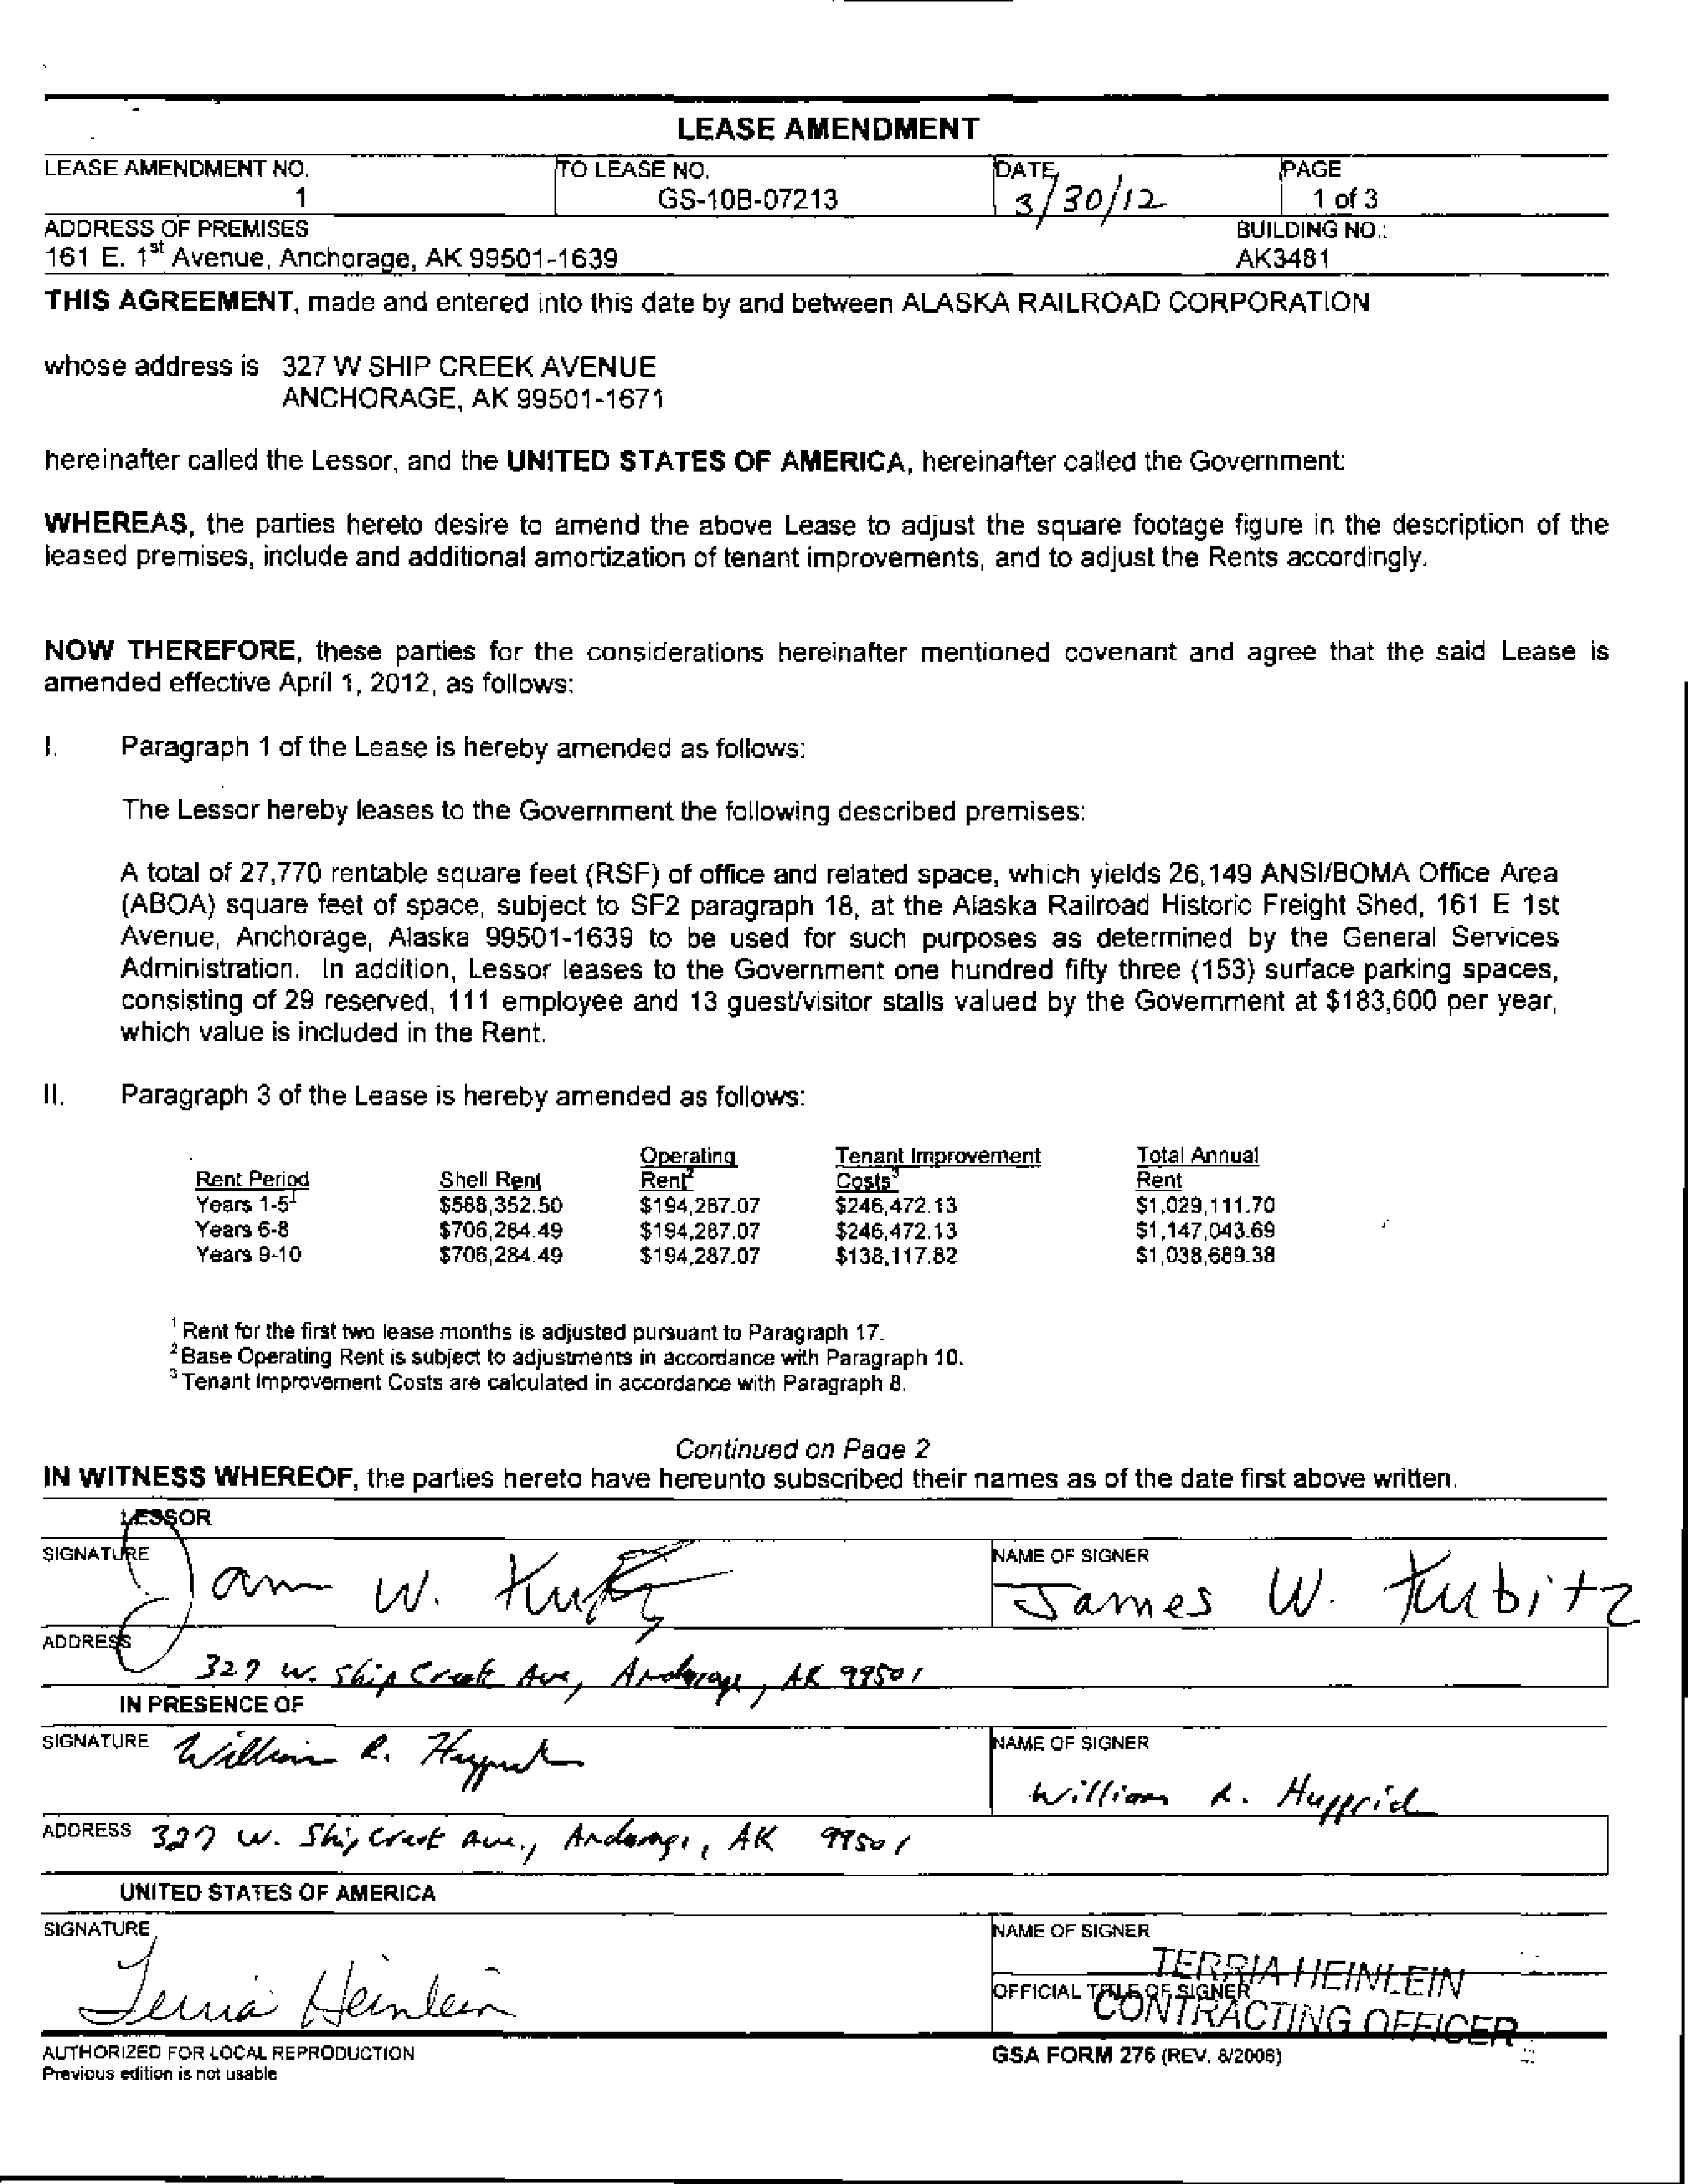 LEASE AMENDMENT
LEASE AMENDMENT NO. TO LEASE NO. DATE PAGE
1 GS-10B-07213 3/30/12 1 of 3
ADDRESS OF PREMISES BUILDING NO.:
161 E. 1st Avenue, Anchorage, AK 99501-1639 AK3481
THIS AGREEMENT, made and entered into this date by and between ALASKA RAILROAD CORPORATION
whose address is 327 W SHIP CREEK AVENUE
ANCHORAGE, AK 99501-1671
hereinafter called the Lessor, and the UNITED STATES OF AMERICA, hereinafter called the Government:
WHEREAS, the parties hereto desire to amend the above Lease to adjust the square footage figure in the description of the
leased premises, include and additional amortization of tenant improvements, and to adjust the Rents accordingly.
NOW THEREFORE, these parties for the considerations hereinafter mentioned covenant and agree that the said Lease is
amended effective April 1, 2012, as follows:
I. Paragraph 1 of the Lease is hereby amended as follows:
The Lessor hereby leases to the Government the following described premises:
A total of 27,770 rentable square feet (RSF) of office and related space, which yields 26,149 ANSI/BOMA Office Area
(ABOA) square feet of space, subject to SF2 paragraph 18, at the Alaska Railroad Historic Freight Shed, 161 E 1st
Avenue, Anchorage, Alaska 99501-1639 to be used for such purposes as determined by the General Services
Administration. In addition, Lessor leases to the Government one hundred fifty three (153) surface parking spaces,
consisting of 29 reserved, 111 employee and 13 guest/visitor stalls valued by the Government at $183,600 per year,
which value is included in the Rent.
II. Paragraph 3 of the Lease is hereby amended as follows:
Operating Tenant Improvement Total Annual
Rent Period Shell Rent Rent2 Costs3 Rent
Years 1-51 $588,352.50 $194,287.07 $246,472.13 $1,029,111.70
Years 6-8 $706,284.49 $194,287.07 $246,472.13 $1,147,043.69
Years 9-10 $706,284.49 $194,287.07 $138,117.82 $1,038,689.38
1 Rent for the first two lease months is adjusted pursuant to Paragraph 17.
2 Base Operating Rent is subject to adjustments in accordance with Paragraph 10.
3 Tenant Improvement Costs are calculated in accordance with Paragraph 8.
Continued on Page 2
IN WITNESS WHEREOF, the parties hereto have hereunto subscribed their names as of the date first above written.
LESSOR
SIGNATURE NAME OF SIGNER
James W. Kubitz
ADDRESS
327 W. Ship Creek Ave, Anchorage, AK 99501
IN PRESENCE OF
SIGNATURE William R. NAME OF SIGNER
William R.
ADDRESS 327 W. Ship Creek Ave., Anchorage, AK 99501
UNITED STATES OF AMERICA
SIGNATURE NAME OF SIGNER
Terria Heinlein TERRIA HEINLEIN
OFFICIAL TITLE OF SIGNER
CONTRACTING OFFICER
AUTHORIZED FOR LOCAL REPRODUCTION GSA FORM 276 (REV. 8/2006)
Previous edition is not usable